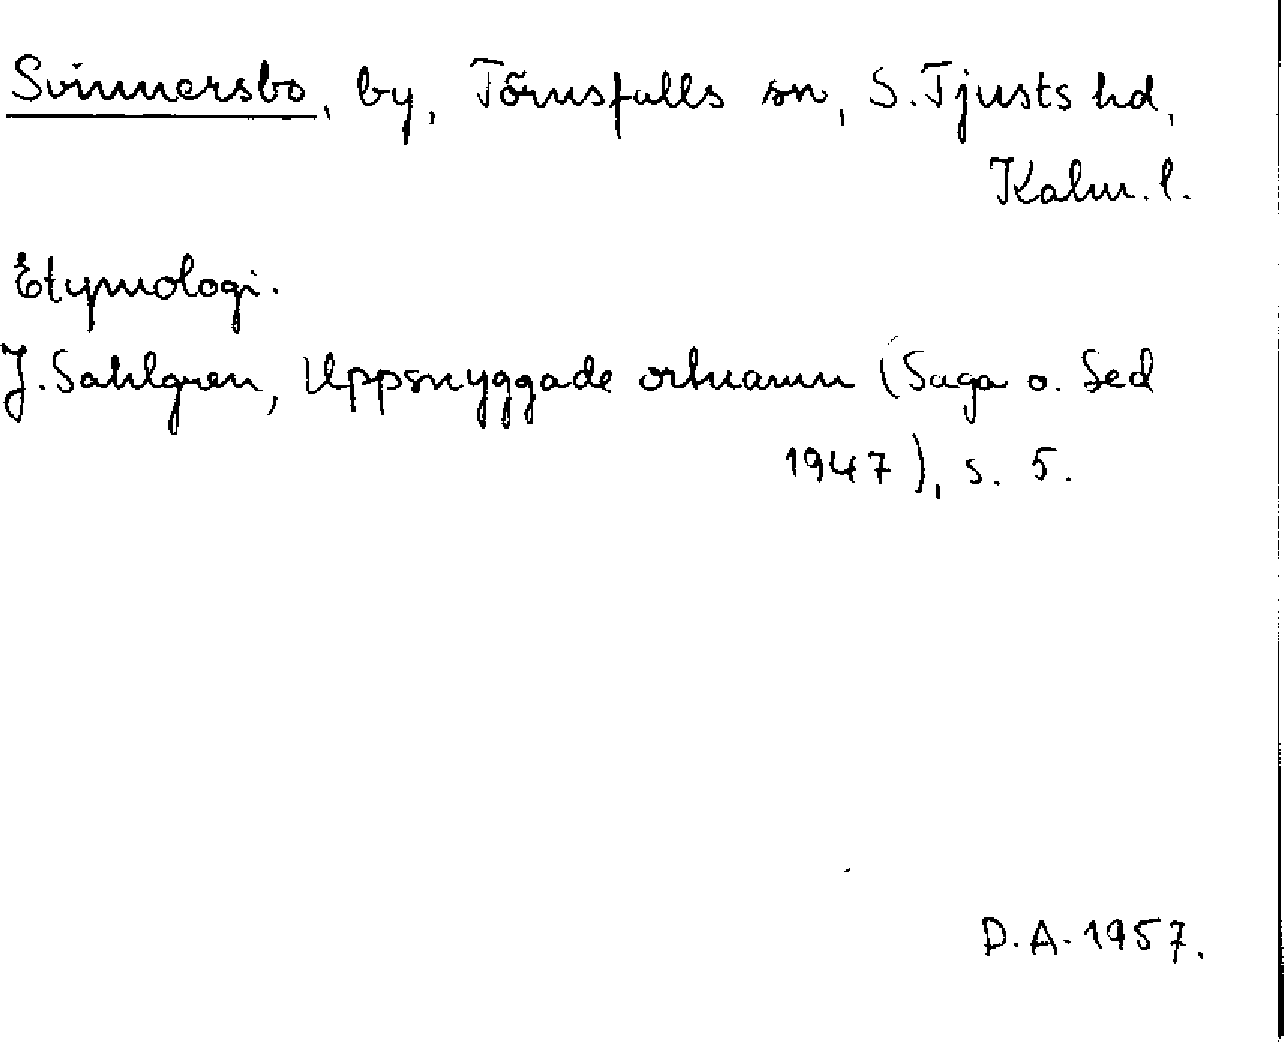 Svinnersbo, by, Törnsfalls sn, S. Tjusts hd,
Kalm. l.
Etymologi.
J. Sahlgren, Uppsnyggade ortnamn (Saga o. Sed
1947), s. 5.
D.A. 1957.